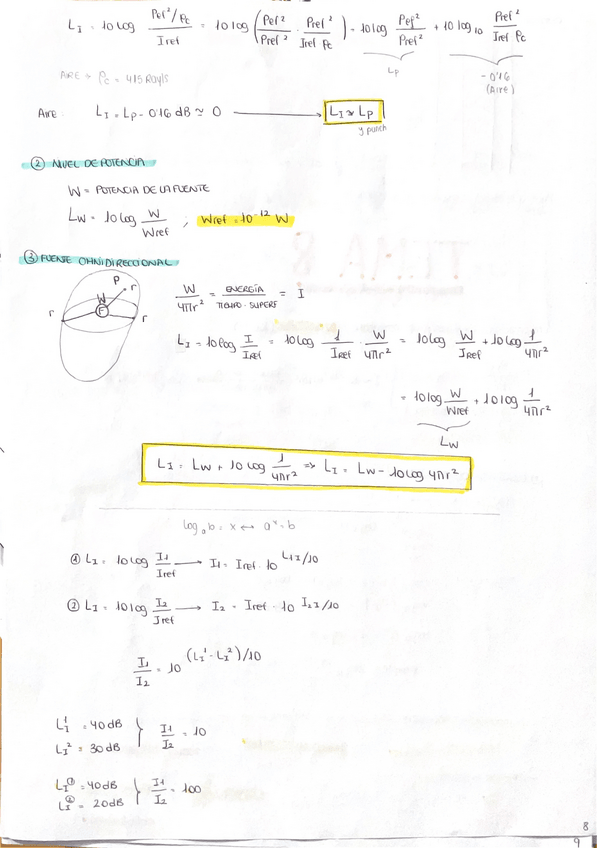 LI = 10 log Pef²/ρc / Iref = 10 log (Pef²/Pref² · Pref²/Iref ρc) = 10 log Pef²/Pref² + 10 log₁₀ Pref²/Iref ρc
Lp
-0'16
(Aire)
AIRE → ρc = 415 Rayls
Aire. LI = Lp - 0'16 dB ≃ 0 → LI ≈ Lp
y punch
② NIVEL DE POTENCIA
W = POTENCIA DE LA FUENTE
Lw = 10 log W/Wref ; Wref = 10⁻¹² W
③ FUENTE OMNIDIRECCIONAL
P r
W
F
r r
W/4πr² = ENERGÍA/TIEMPO · SUPERF = I
LI = 10 log I/IREF = 10 log 1/IREF · W/4πr² = 10 log W/IREF + 10 log 1/4πr²
= 10 log W/Wref + 10 log 1/4πr²
Lw
LI = Lw + 10 log 1/4πr² ⇒ LI = Lw - 10 log 4πr²
logₐ b = x ↔ aˣ = b
① LI = 10 log I1/Iref → I1 = Iref · 10^LI1/10
② LI = 10 log I2/Iref → I2 = Iref · 10^I2I/10
I1/I2 = 10^(LI¹ - LI²)/10
LI¹ = 40 dB } I1/I2 = 10
LI² = 30 dB
LI① = 40 dB } I1/I2 = 100
LI② = 20 dB
8
9